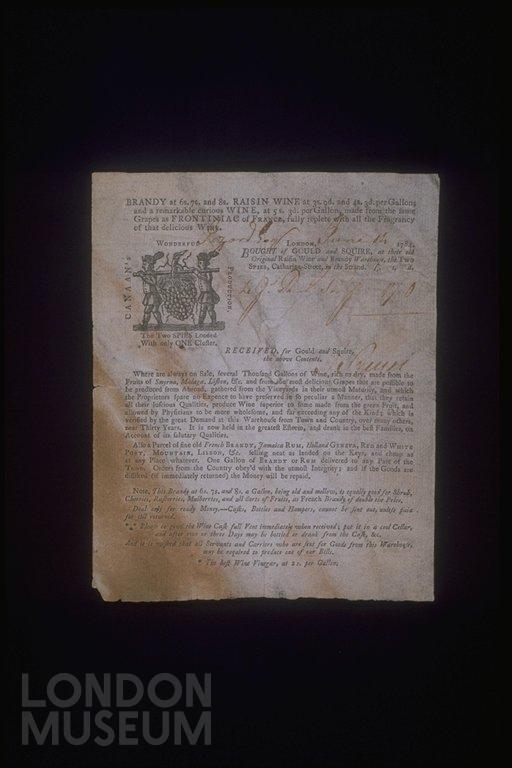 BRANDY at 6s. 7s. and 8s. RAISIN WINE at 3s. 9d. and 4s. 3d. per Gallon;
and a remarkable curious WINE, at 5s. 3d. per Gallon, made from the same
Grapes as FRONTINIAC of FRANCE, fully replete with all the Fragrancy
of that delicious Wine.
WONDERFUL
CANAAN's
PRODUCTION.
The Two SPIES Loaded
With only ONE Cluster.
LONDON, June 178
BOUGHT of GOULD and SQUIRE, at their old
Original Raisin Wine and Brandy Warehouse, the Two
SPIES, Catharine-Street, in the Strand. l. s. d.
RECEIVED, for Gould and Squire,
the above Contents.
Where are always on Sale, several Thousand Gallons of Wine, rich or dry, made from the
Fruits of Smyrna, Malaga, Lisbon, &c. and from the most delicious Grapes that are possible to
be produced from Abroad, gathered from the Vineyards in their utmost Maturity, and which
the Proprietors spare no Expence to have preserved in so peculiar a Manner, that they retain
all their luscious Qualities, produce Wine superior to some made from the green Fruit, and
allowed by Physicians to be more wholesome, and far exceeding any of the Kind; which is
verified by the great Demand at this Warehouse from Town and Country, over many others,
near Thirty Years. It is now held in the greatest Esteem, and drank in the best Families, on
Account of its salutary Qualities.
Also a Parcel of fine old French BRANDY, Jamaica RUM, Holland GENEVA, RED and WHITE
PORT, MOUNTAIN, LISBON, &c. selling neat as landed on the Keys, and cheap as
at any Place whatever. One Gallon of BRANDY or RUM delivered to any Part of the
Town. Orders from the Country obey'd with the utmost Integrity; and if the Goods are
disliked (if immediately returned) the Money will be repaid.
Note, This Brandy at 6s. 7s. and 8s. a Gallon, being old and mellow, is equally good for Shrub,
Cherries, Rasberries, Mulberries, and all Sorts of Fruits, as French Brandy of double the Price.
Deal only for ready Money.—Casks, Bottles and Hampers, cannot be sent out, unless paid
for till returned.
*** Please to give the Wine Cask full Vent immediately when received; put it in a cool Cellar,
and after two or three Days may be bottled or drank from the Cask, &c.
And it is wished that all Servants and Carriers who are sent for Goods from this Warehouse,
may be required to produce one of our Bills.
* The best Wine Vinegar, at 2s. per Gallon.
LONDON
MUSEUM